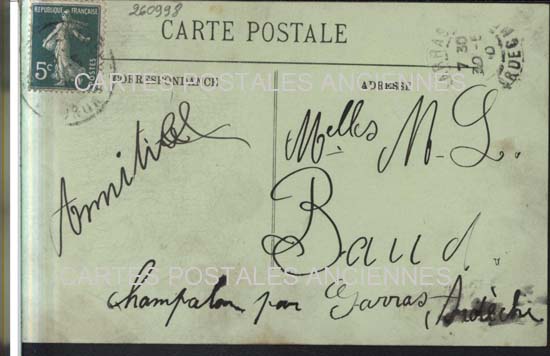 260998
RÉPUBLIQUE FRANÇAISE
5c
POSTES
CARTE POSTALE
7 30
CORRESPONDANCE
ADRESSE
CARTES POSTALES ANCIENNES
Melles M. L.
Baud.
CARTES POSTALES ANCIENNES
Champalon par Sarras, Ardèche